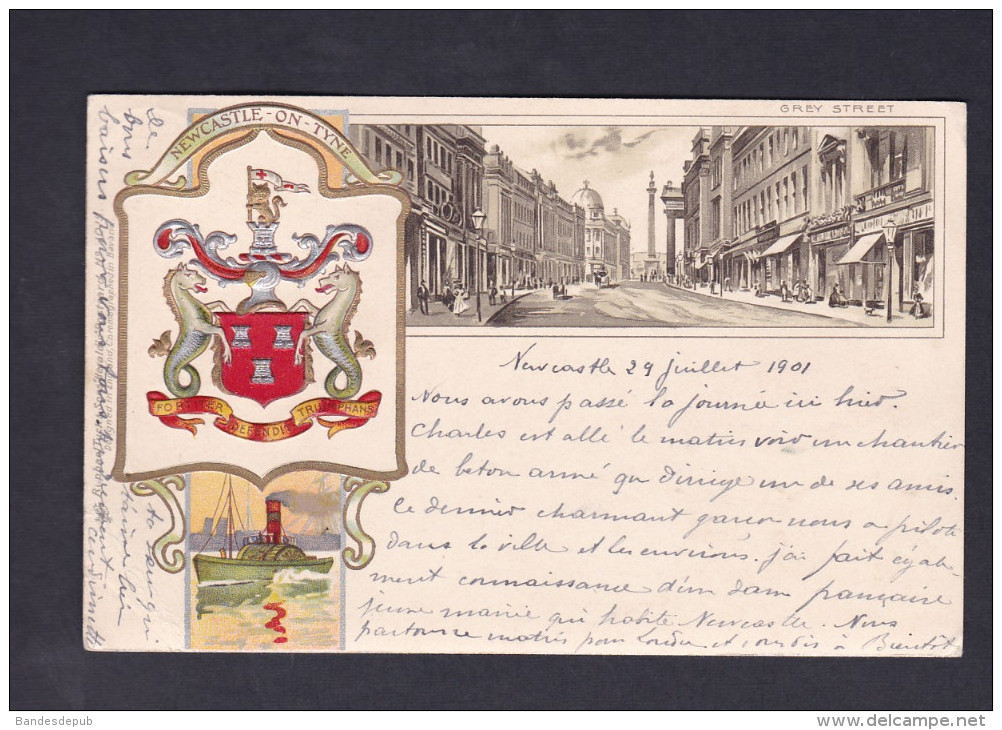 NEWCASTLE-ON-TYNE
GREY STREET
FORTITER
DEFENDIT
TRIUMPHANS
Newcastle 29 juillet 1901
Nous avons passé la journée ici hier.
Charles est allé le matin voir un chantier
de beton armé qu dirige un de ses amis.
Ce dernier charmant garçon nous a piloté
dans la ville et les environs. j'ai fait égale-
ment connaissance d'un dam française
jeune mariée qui habite Newcastle. Nous
partons ce matin pour et à Bientôt
de
bons
baisers
ta sœur qui
t'aime bien
Bandesdepub
www.delcampe.net